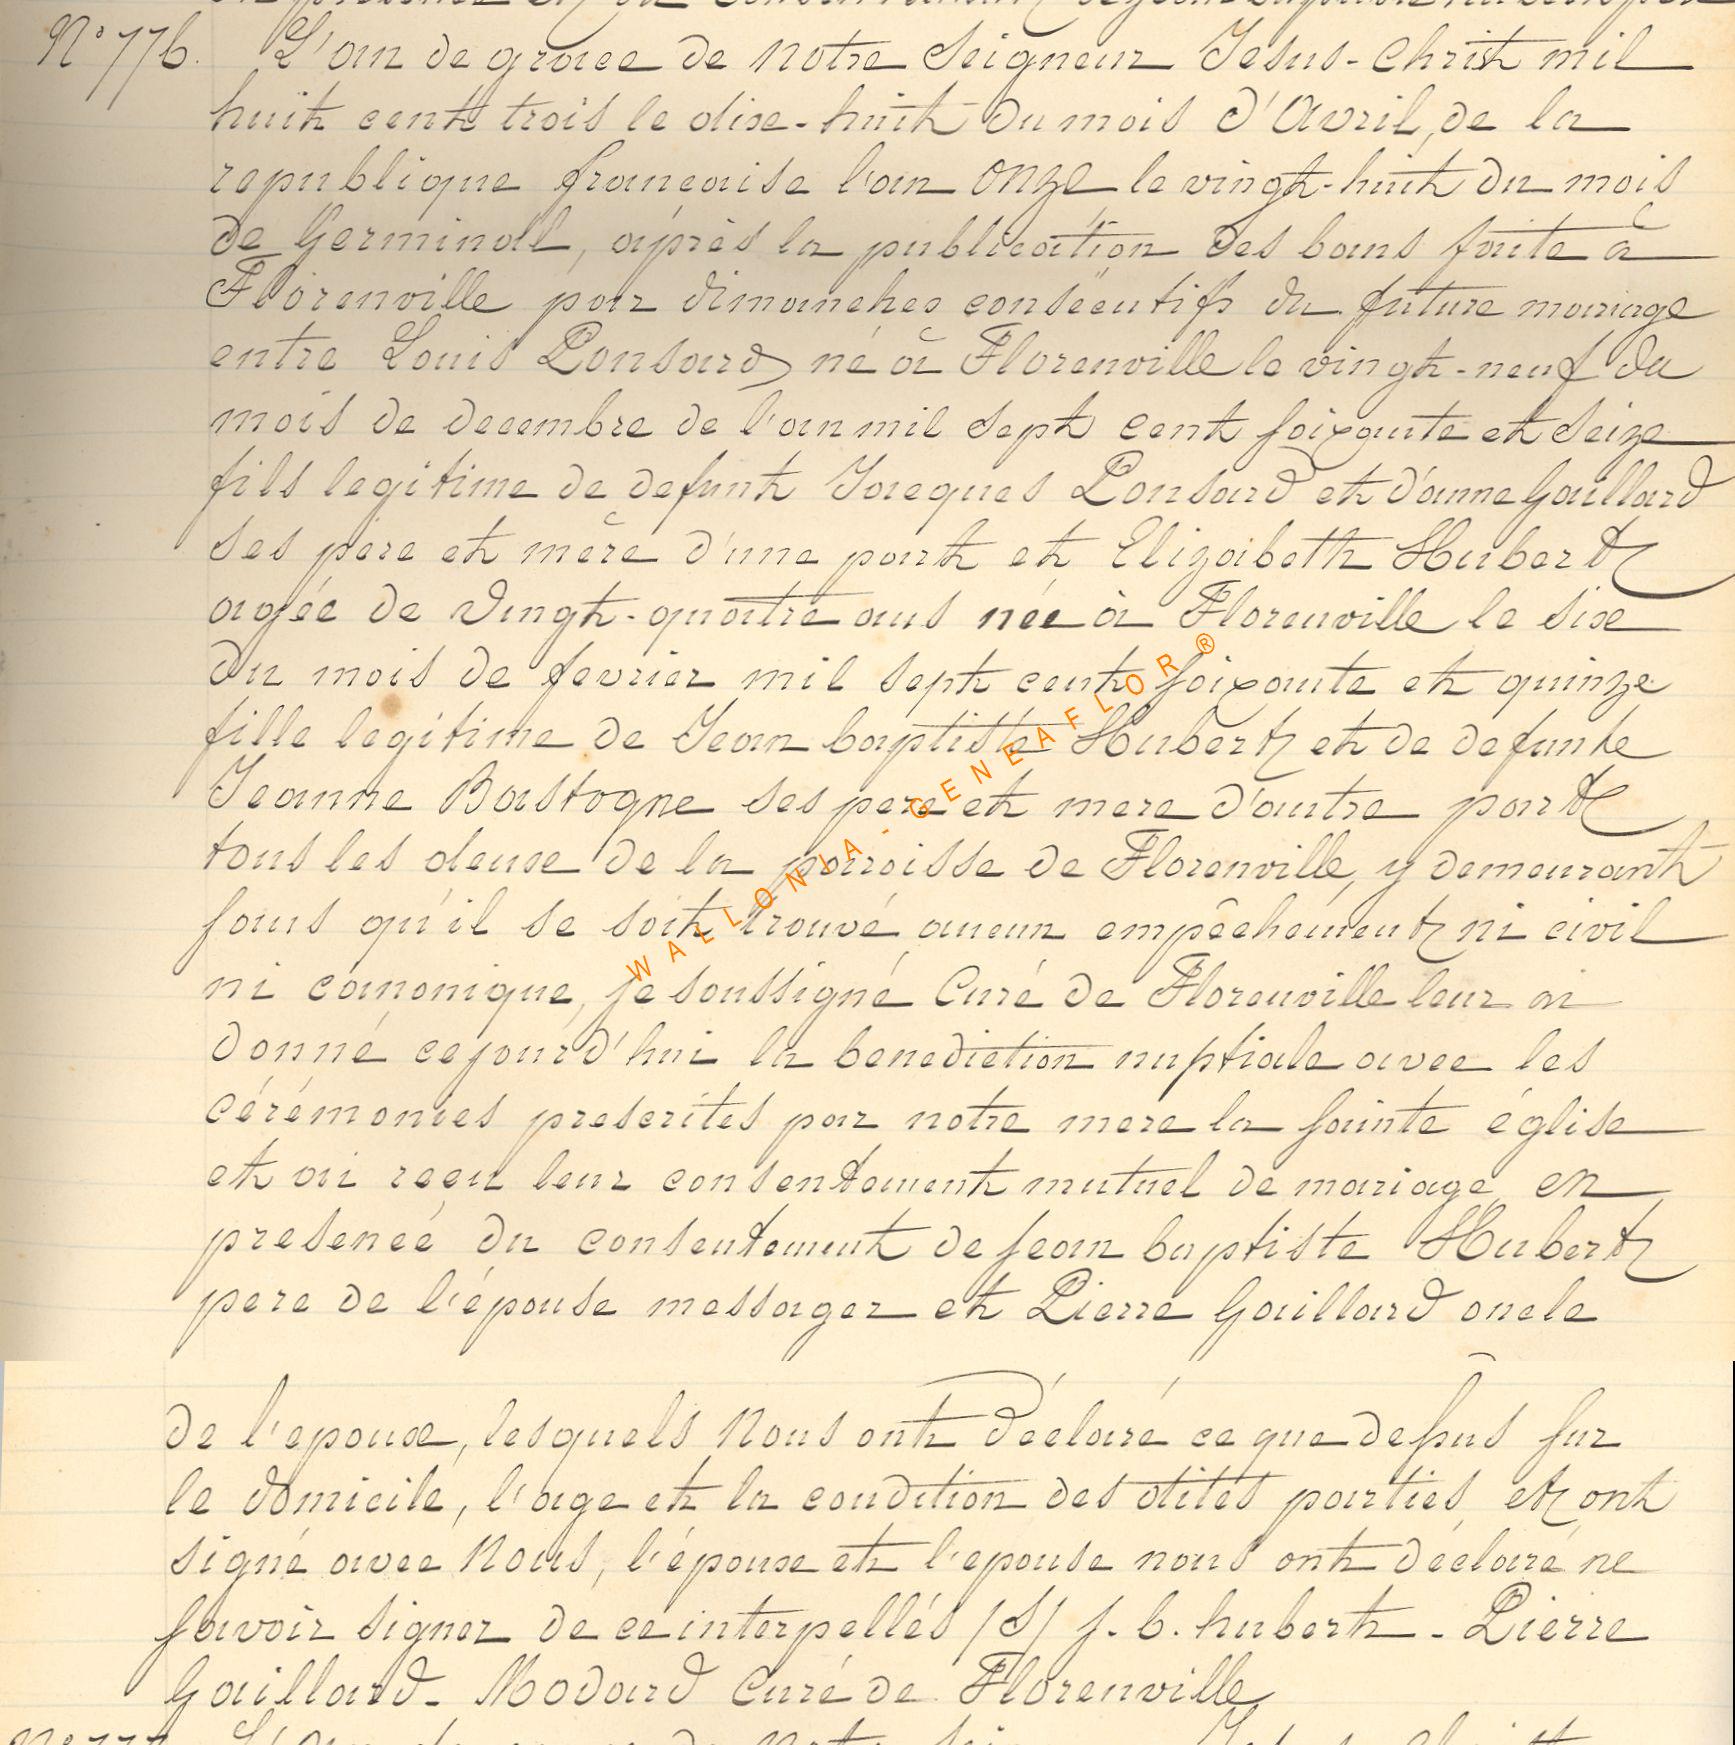 N° 776. L'an de grace de Notre Seigneur Jesus-Christ mil
huit cent trois le dix-huit du mois d'Avril, de la
republique française l'an onze le vingt-huit du mois
de Germinall, après la publication des bans faite à
Florenville par dimanches consécutifs du future mariage
entre Louis Ponsard né à Florenville le vingt-neuf du
mois de decembre de l'an mil sept cent soixante et seize
fils legitime de defunt Jacques Ponsard et d'anne Gaillard
ses père et mère d'une part et Elizabeth Hubert
agée de vingt-quatre ans née à Florenville le six
du mois de fevrier mil sept cent soixante et quinze
fille legitime de Jean baptiste Hubert et de defunte
Jeanne Bastogne ses pere et mere d'autre part
tous les deux de la parroisse de Florenville, y demeurant
sans qu'il se soit trouvé aucun empêchement ni civil
ni canonique, je soussigné Curé de Florenville leur ai
donné cejourd'hui la benediction nuptiale avec les
cérémonies prescrites par notre mere la sainte église
et ai reçu leur consentement mutuel de mariage en
presence du consentement de jean baptiste Hubert
pere de l'épouse messager et Pierre Gaillard oncle
de l'epoux, lesquels Nous ont déclaré ce que dessus sur
le domicile, l'age et la condition des dites parties, et ont
signé avec Nous, l'époux et l'epouse nous ont déclaré ne
savoir signer de ce interpellés /S/ j. b. hubert - Pierre
Gaillard - Modard Curé de Florenville
WALLONIA-GENEAFLOR®